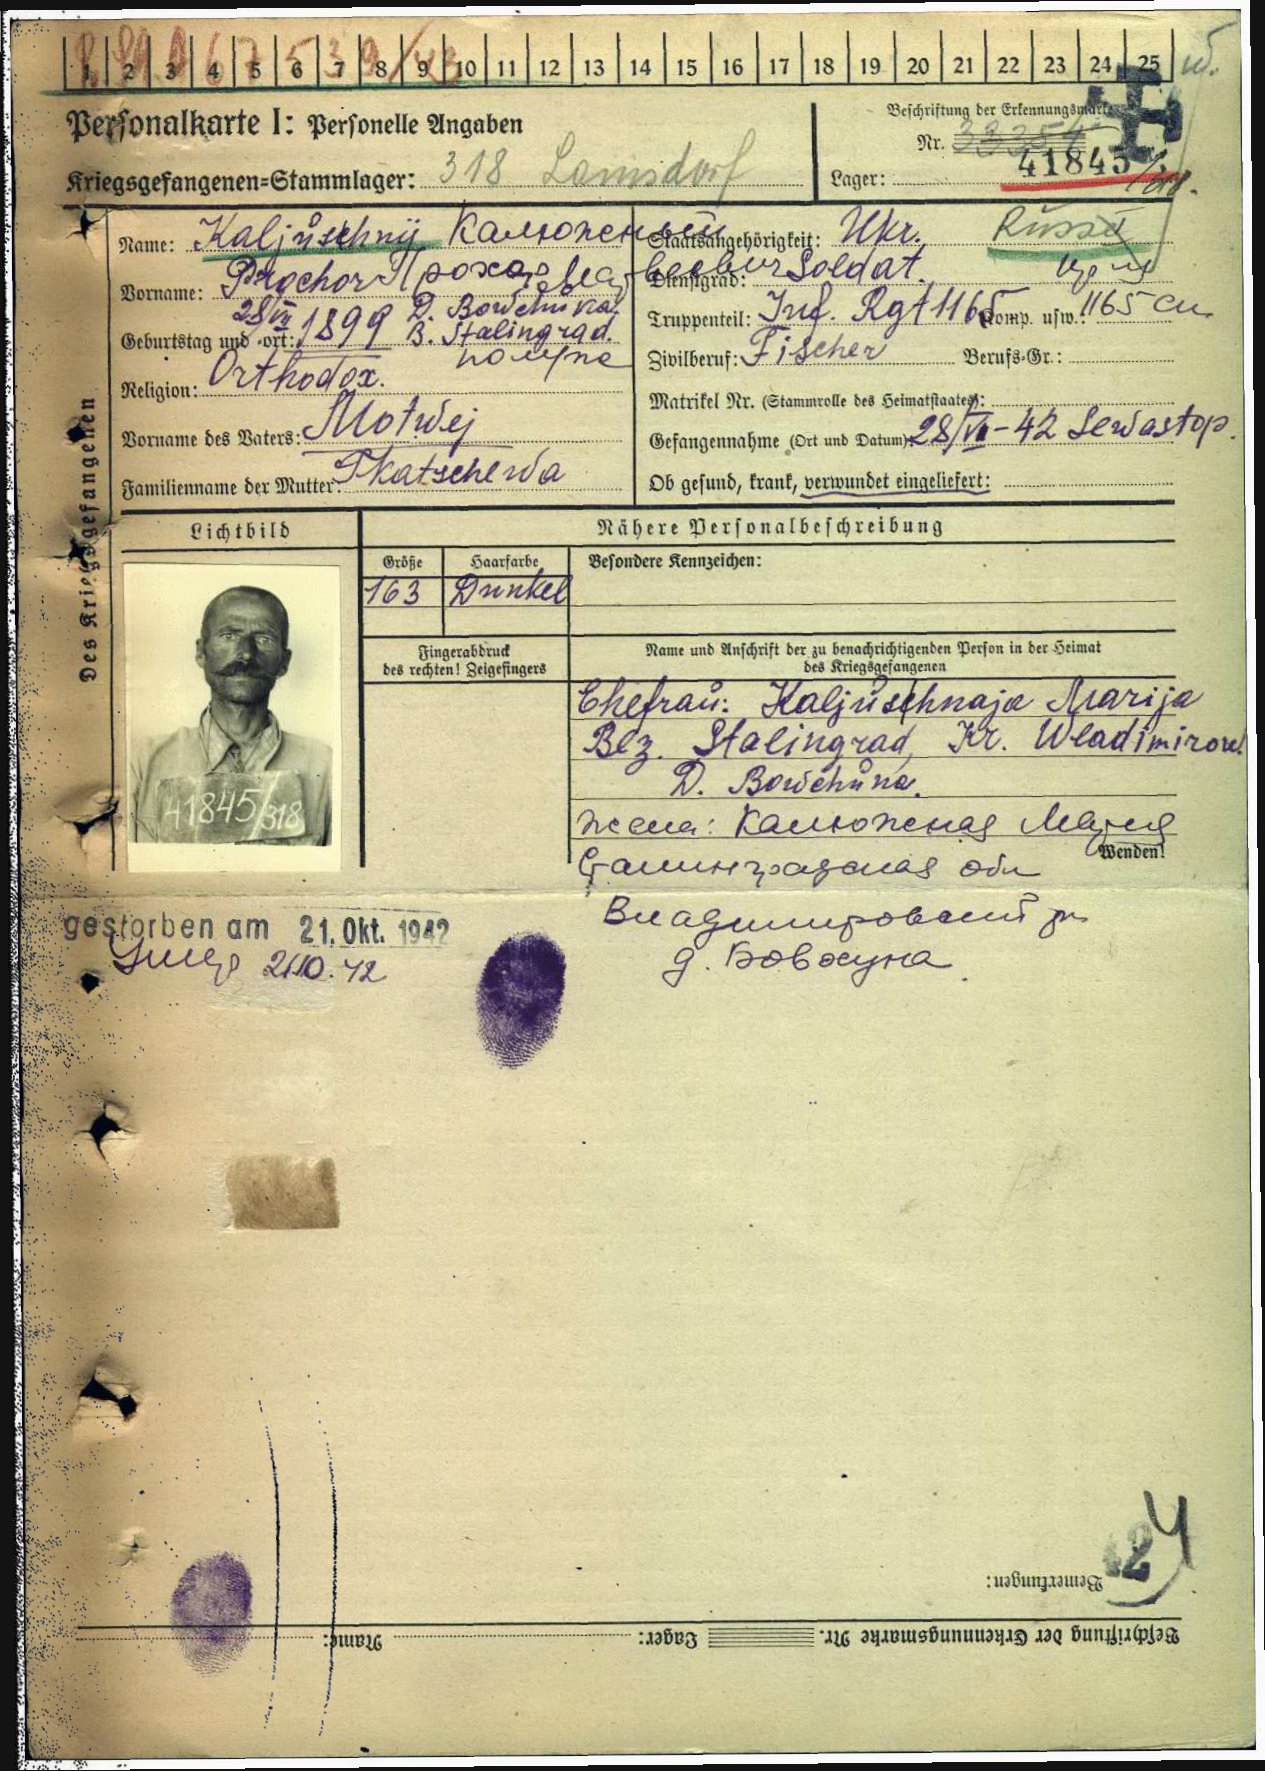 1 2 3 4 5 6 7 8 9 10 11 12 13 14 15 16 17 18 19 20 21 22 23 24 25
Personalkarte I: Personelle Angaben
Beschriftung der Erkennungsmarke
Nr. 41845
Kriegsgefangenen=Stammlager: 318 Lamsdorf
Lager:
Des Kriegsgefangenen
Name: Kaljuschnij Калюжный
Vorname: Prochor Прохор
Geburtstag und -ort: 28/VII 1899 D. Bowchuna
B. Stalingrad.
Religion: Orthodox.
Vorname des Vaters: Motwej
Familienname der Mutter: Tkatschewa
Staatsangehörigkeit: Ukr. Russe
Dienstgrad: Soldat.
Truppenteil: Inf. Rgt 1165 Komp. usw.: 1165 сп
Zivilberuf: Fischer Berufs-Gr.:
Matrikel Nr. (Stammrolle des Heimatstaates):
Gefangennahme (Ort und Datum): 28/VI-42 Sewastop.
Ob gesund, krank, verwundet eingeliefert:
Lichtbild
Nähere Personalbeschreibung
Größe Haarfarbe Besondere Kennzeichen:
163 Dunkel
Fingerabdruck
des rechten! Zeigefingers
Name und Anschrift der zu benachrichtigenden Person in der Heimat
des Kriegsgefangenen
41845/318
Ehefrau: Kaljuschnaja Marija
Bez. Stalingrad, Kr. Wladimirow.
D. Bowchuna.
жена: Калюжная Мария
Wenden!
Сталинградская обл
Владимировский рн
д. Бовхуна
gestorben am 21. Okt. 1942
21.10.42
Bemerkungen:
Beschriftung der Erkennungsmarke Nr. Lager: Name: